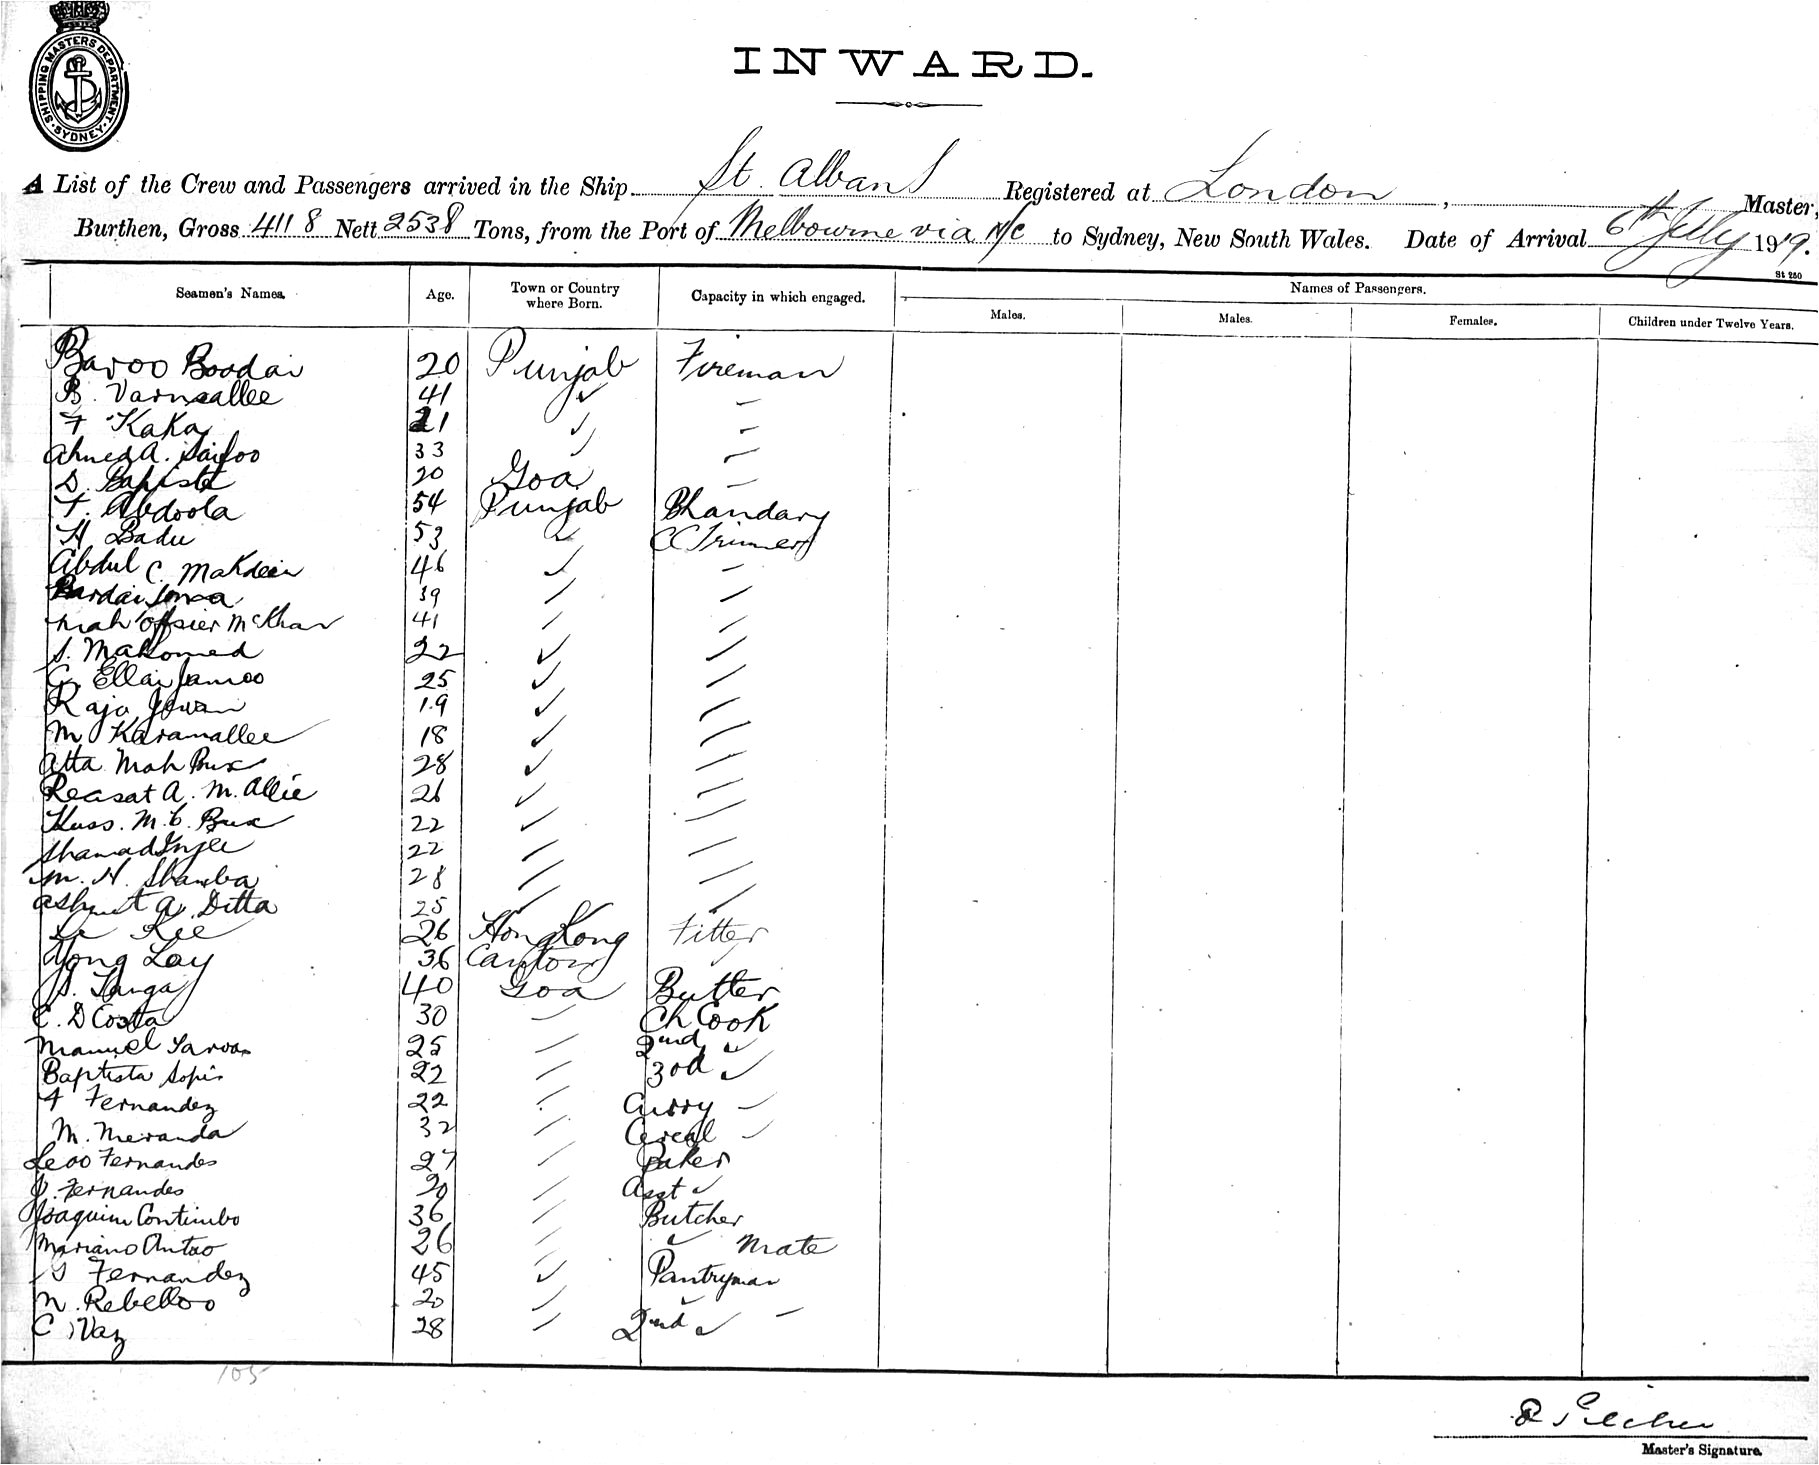 SHIPPING MASTERS DEPARTMENT. SYDNEY.
INWARD.
A List of the Crew and Passengers arrived in the Ship St. Albans Registered at London, Master,
Burthen, Gross 4118 Nett 2538 Tons, from the Port of Melbourne via N/C to Sydney, New South Wales. Date of Arrival 6th July 1919.
St 250
Seamen's Names. Age. Town or Country where Born. Capacity in which engaged. Names of Passengers.
Males. Males. Females. Children under Twelve Years.
Baroo Boodai 20 Punjab Fireman
B. Varnsallee 41 ✓ –
F Kaka 21 ✓ –
Ahmed A. Saifoo 33 ✓ –
D. Bapista 20 Goa –
F. Abdoola 54 Punjab Bhandary
H. Badu 53 ✓ CC Trimer
Abdul C. Makdeen 46 ✓ –
39
Mah 41
S. Mahomed 22 ✓
G. Ellai Jamoo 25 ✓
Raja 19 ✓
M Karamallee 18 ✓
Atta Mah Bux 28 ✓
Reasat A. M. Allie 26 ✓
Huss. M. C. Bux 22 ✓
22
M. H. Shamba 28
A. Ditta 25
Kee 26 Hong Kong Fitter
Yong Lay 36 Canton
40 Goa Butter
C. D Costa 30 – Ch Cook
Manuel 25 2nd ✓
Baptista 22 3rd ✓
F Fernandez 22 Curry –
M. Meranda 32 Cereal ✓
Leoo Fernandes 27 Baker
J. Fernandes 20 Asst ✓
Joaquim Contimbo 36 Butcher
Mariano Antao 26 ✓ Mate
Fernandez 45 ✓ Pantryman
N. Rebelloo 20
C Vaz 28 2nd ✓ –
105
Master's Signature.